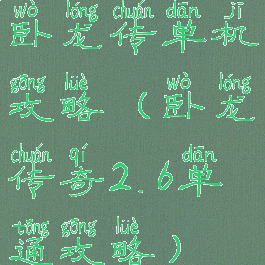 wò lóng chuán dān jī
卧龙传单机
gōng lüè wò lóng
攻略(卧龙
chuán qí dān
传奇2.6单
tōng gōng lüè
通攻略)